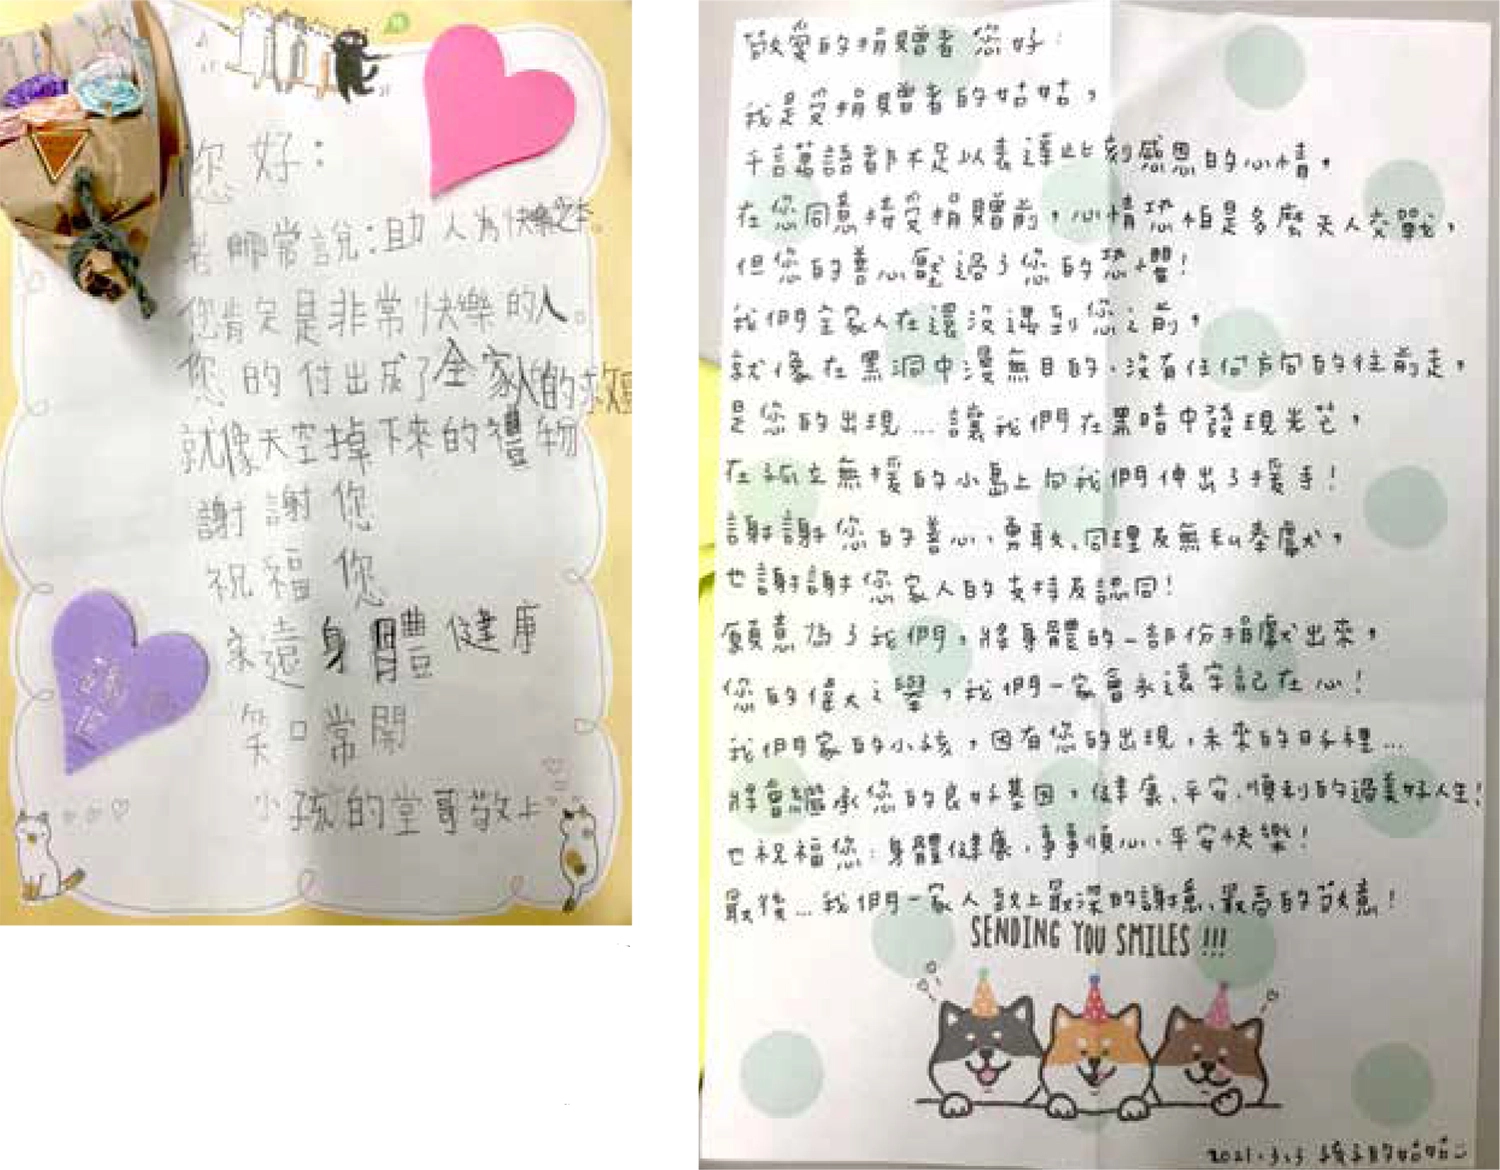 您好：
老師常說：助人為快樂之本。
您肯定是非常快樂的人。
您的付出成了全家人的救
就像天空掉下來的禮物
謝謝您
祝福您
永遠身體健康
笑口常開
小孩的堂哥敬上
敬愛的捐贈者 您好：
我是受捐贈者的姑姑，
千言萬語都不足以表達此刻感恩的心情，
在您同意接受捐贈前，心情恐怕是多麼天人交戰，
但您的善心戰過了您的恐懼！
我們全家人在還沒遇到您之前，
就像在黑洞中漫無目的、沒有任何方向的往前走，
是您的出現...讓我們在黑暗中發現光芒，
在孤立無援的小島上向我們伸出了援手！
謝謝您的善心、勇敢、同理及無私奉獻，
也謝謝您家人的支持及認同！
願意為了我們，將身體的一部份捐獻出來，
您的偉大之舉，我們一家會永遠牢記在心！
我們家的小孩，因有您的出現，未來的日子裡...
將會繼承您的良好基因，健康、平安、順利的過美好人生！
也祝福您：身體健康、事事順心、平安快樂！
最後...我們一家人致上最深的謝意、最高的敬意！
SENDING YOU SMILES !!!
2021.3.3 孩子的姑姑